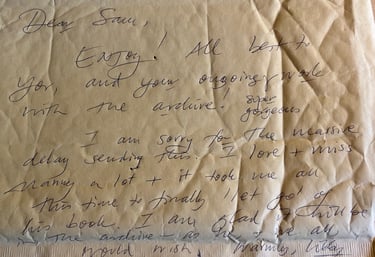 Dear Sam,
Enjoy! All best to
you, and your ongoing work
with the archive! super
gorgeous
I am sorry for the massive
delay sending this. I love + miss
a lot + it took me all
this time to finally let go of
his book. I am glad it will be
in the archive - as he + we all
would wish. Warmly,